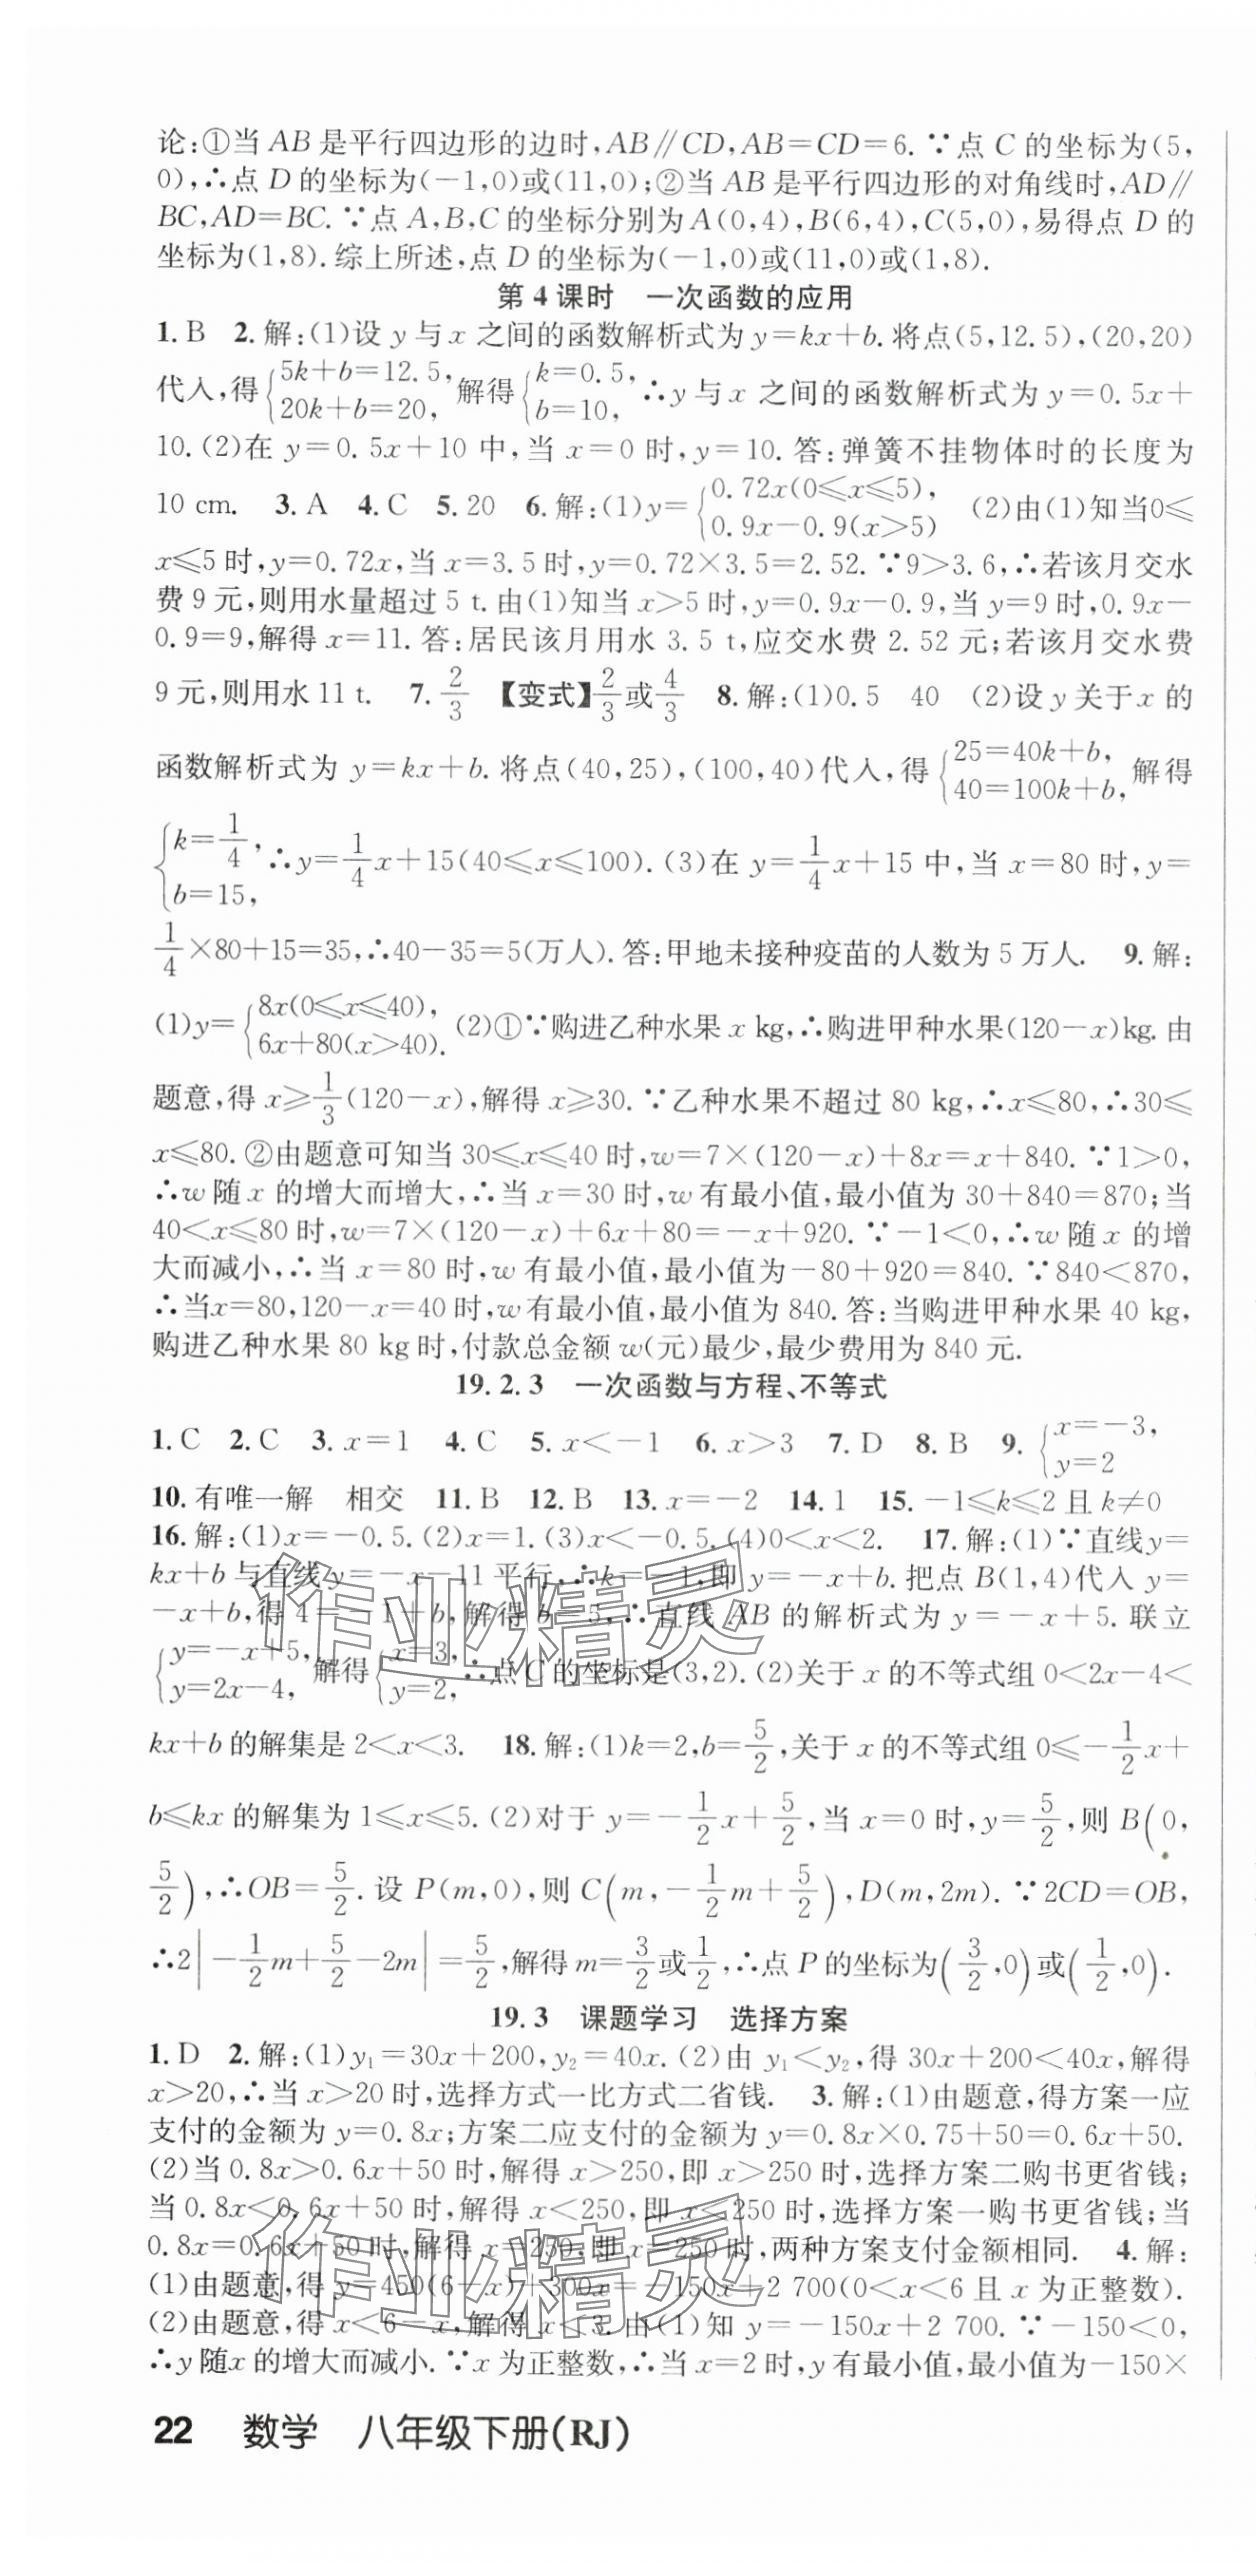 论:①当 AB 是平行四边形的边时,AB∥CD,AB=CD=6.∵点 C 的坐标为(5,
0),∴点 D 的坐标为(-1,0)或(11,0);②当 AB 是平行四边形的对角线时,AD∥
BC,AD=BC.∵点 A,B,C 的坐标分别为 A(0,4),B(6,4),C(5,0),易得点 D 的
坐标为(1,8).综上所述,点 D 的坐标为(-1,0)或(11,0)或(1,8).
第 4 课时 一次函数的应用
1.B 2.解:(1)设 y 与 x 之间的函数解析式为 y=kx+b.将点(5,12.5),(20,20)
代入,得{5k+b=12.5, 20k+b=20, 解得{k=0.5, b=10, ∴y 与 x 之间的函数解析式为 y=0.5x+
10.(2)在 y=0.5x+10 中,当 x=0 时,y=10.答:弹簧不挂物体时的长度为
10 cm. 3.A 4.C 5.20 6.解:(1)y={0.72x(0≤x≤5), 0.9x-0.9(x>5) (2)由(1)知当0≤
x≤5 时,y=0.72x,当 x=3.5 时,y=0.72×3.5=2.52.∵9>3.6,∴若该月交水
费 9 元,则用水量超过 5 t.由(1)知当 x>5 时,y=0.9x-0.9,当 y=9 时,0.9x-
0.9=9,解得 x=11.答:居民该月用水 3.5 t,应交水费 2.52 元;若该月交水费
9 元,则用水 11 t. 7.2/3 【变式】2/3或4/3 8.解:(1)0.5 40 (2)设 y 关于 x 的
函数解析式为 y=kx+b.将点(40,25),(100,40)代入,得{25=40k+b, 40=100k+b, 解得
{k=1/4, b=15, ∴y=1/4x+15(40≤x≤100).(3)在 y=1/4x+15 中,当 x=80 时,y=
1/4×80+15=35,∴40-35=5(万人).答:甲地未接种疫苗的人数为 5 万人. 9.解:
(1)y={8x(0≤x≤40), 6x+80(x>40). (2)①∵购进乙种水果 x kg,∴购进甲种水果(120-x)kg.由
题意,得 x≥1/3(120-x),解得 x≥30.∵乙种水果不超过 80 kg,∴x≤80,∴30≤
x≤80.②由题意可知当 30≤x≤40 时,w=7×(120-x)+8x=x+840.∵1>0,
∴w 随 x 的增大而增大,∴当 x=30 时,w 有最小值,最小值为 30+840=870;当
40<x≤80 时,w=7×(120-x)+6x+80=-x+920.∵-1<0,∴w 随 x 的增
大而减小,∴当 x=80 时,w 有最小值,最小值为-80+920=840.∵840<870,
∴当x=80,120-x=40 时,w 有最小值,最小值为 840.答:当购进甲种水果 40 kg,
购进乙种水果 80 kg 时,付款总金额 w(元)最少,最少费用为 840 元.
19.2.3 一次函数与方程、不等式
1.C 2.C 3.x=1 4.C 5.x<-1 6.x>3 7.D 8.B 9.{x=-3, y=2
10.有唯一解 相交 11.B 12.B 13.x=-2 14.1 15.-1≤k≤2 且 k≠0
16.解:(1)x=-0.5.(2)x=1.(3)x<-0.5.(4)0<x<2. 17.解:(1)∵直线y=
kx+b 与直线 y=-x-11 平行,∴k=-1,即 y=-x+b.把点 B(1,4)代入 y=
-x+b,得 4=-1+b,解得 b=5,∴直线 AB 的解析式为 y=-x+5.联立
{y=-x+5, y=2x-4, 解得{x=3, y=2, ∴点 C 的坐标是(3,2).(2)关于 x 的不等式组 0<2x-4<
kx+b 的解集是 2<x<3. 18.解:(1)k=2,b=5/2,关于 x 的不等式组 0≤-1/2x+
b≤kx 的解集为 1≤x≤5.(2)对于 y=-1/2x+5/2,当 x=0 时,y=5/2,则 B(0,
5/2),∴OB=5/2.设 P(m,0),则 C(m,-1/2m+5/2),D(m,2m).∵2CD=OB,
∴2|-1/2m+5/2-2m|=5/2,解得 m=3/2或1/2,∴点 P 的坐标为(3/2,0)或(1/2,0).
19.3 课题学习 选择方案
1.D 2.解:(1)y₁=30x+200,y₂=40x.(2)由 y₁<y₂,得 30x+200<40x,解得
x>20,∴当 x>20 时,选择方式一比方式二省钱. 3.解:(1)由题意,得方案一应
支付的金额为 y=0.8x;方案二应支付的金额为 y=0.8x×0.75+50=0.6x+50.
(2)当 0.8x>0.6x+50 时,解得 x>250,即 x>250 时,选择方案二购书更省钱;
当 0.8x<0.6x+50 时,解得 x<250,即 x<250 时,选择方案一购书更省钱;当
0.8x=0.6x+50 时,解得 x=250,即 x=250 时,两种方案支付金额相同. 4.解:
(1)由题意,得 y=450(6-x)+300x=-150x+2 700(0<x<6 且 x 为正整数).
(2)由题意,得 x<6-x,解得 x<3.由(1)知 y=-150x+2 700.∵-150<0,
∴y 随x 的增大而减小.∵x 为正整数,∴当 x=2 时,y 有最小值,最小值为-150×
22 数学 八年级下册(RJ)
作业精灵
作业精灵